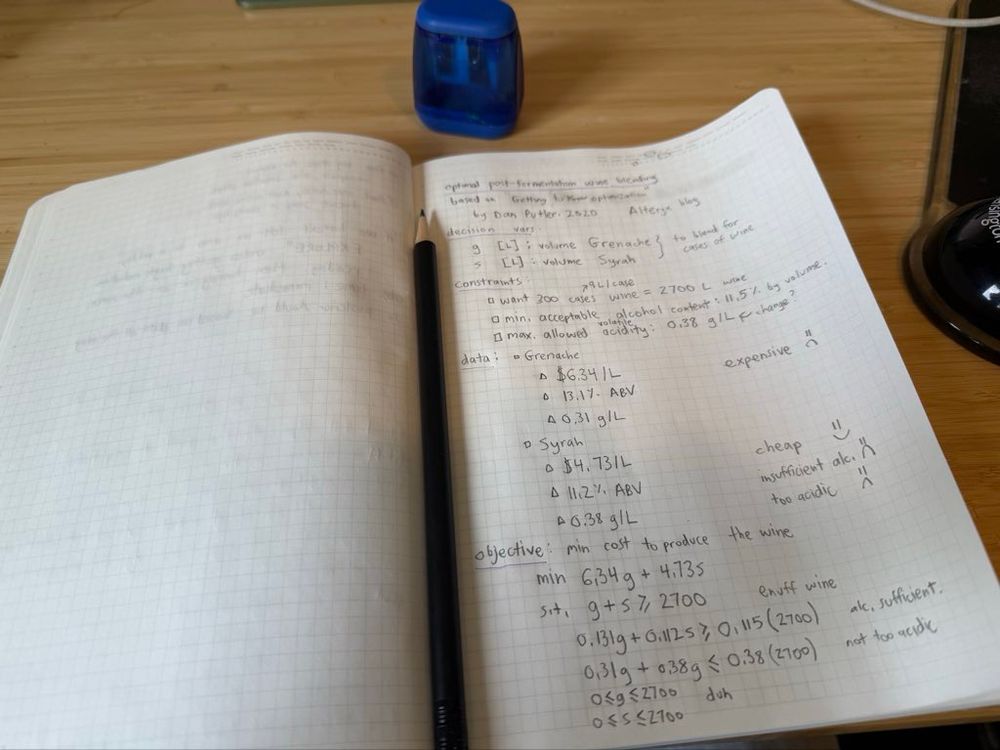 optimal post-fermentation wine blending
based on "Getting to Know optimization"
by Dan Putler. 2020 Alteryx blog
decision vars.
g [L] : volume Grenache } to blend for
s [L] : volume Syrah cases of wine
constraints.
↗9L/case
□ want 300 cases wine = 2700 L wine
□ min. acceptable alcohol content: 11.5% by volume.
□ max. allowed volatile acidity: 0.38 g/L ← change?
data: □ Grenache expensive
△ $6.34/L
△ 13.1% ABV
△ 0.31 g/L
□ Syrah
△ $4.73/L cheap
△ 11.2% ABV insufficient alc.
△ 0.38 g/L too acidic
objective: min cost to produce the wine
min 6.34g + 4.73s
s.t. g+s ≥ 2700 enuff wine
0.131g + 0.112s ≥ 0.115(2700) alc. sufficient.
0.31g + 0.38g ≤ 0.38(2700) not too acidic
0≤g≤2700 duh
0≤s≤2700